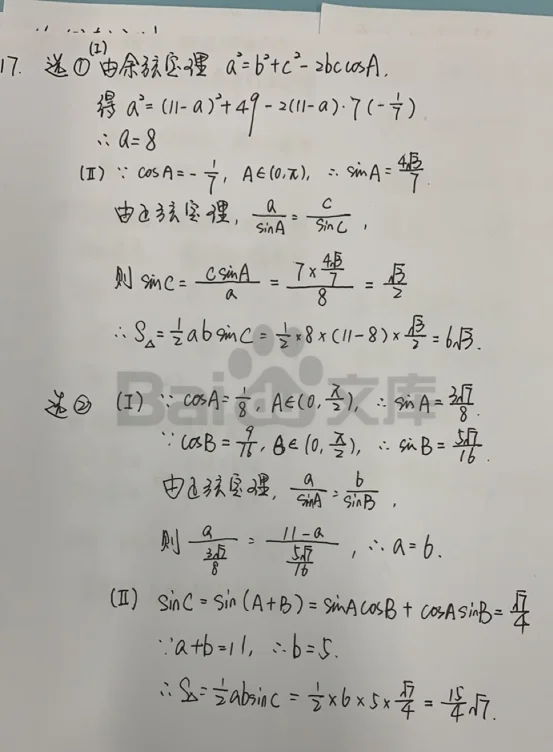 17. 选① (I) 由余弦定理 a²=b²+c²-2bccosA,
得 a²=(11-a)²+49-2(11-a)·7(-1/7)
∴a=8
(II) ∵ cosA=-1/7, A∈(0,π), ∴sinA=4√3/7
由正弦定理, a/sinA=c/sinC,
则 sinC=csinA/a=(7×4√3/7)/8=√3/2
∴S△=1/2absinC=1/2×8×(11-8)×√3/2=6√3.
Bai 文库
选② (I) ∵ cosA=1/8, A∈(0,π/2), ∴sinA=3√7/8.
∵cosB=9/16, B∈(0,π/2), ∴sinB=5√7/16.
由正弦定理, a/sinA=b/sinB,
则 a/(3√7/8)=(11-a)/(5√7/16), ∴a=6.
(II) sinC=sin(A+B)=sinAcosB+cosAsinB=√7/4
∵a+b=11, ∴b=5.
∴S△=1/2absinC=1/2×6×5×√7/4=15/4√7.